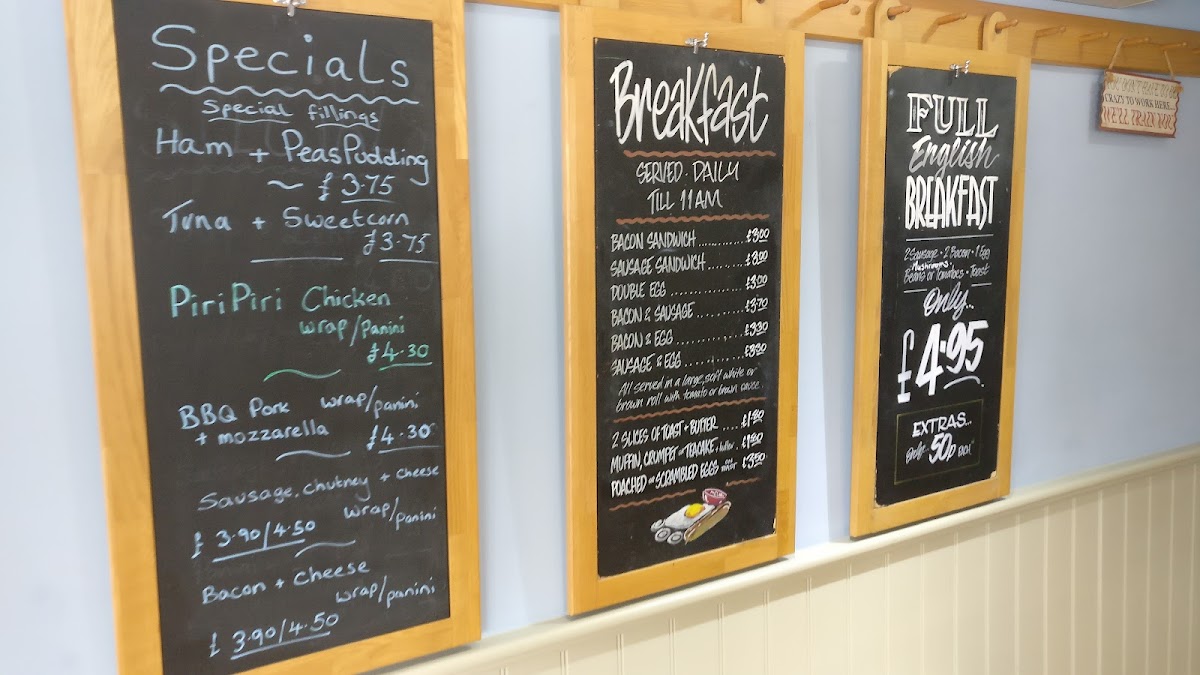 Specials
Special fillings
Ham + PeasPudding
~ £3.75
Tuna + Sweetcorn
£3.75
PiriPiri Chicken
wrap/panini
£4.30
BBQ Pork wrap/panini
+ mozzarella £4.30
Sausage, chutney + cheese
wrap/panini
£ 3.90/4.50
Bacon + cheese
wrap/panini
£ 3.90/4.50
Breakfast
SERVED · DAILY
TILL 11AM
BACON SANDWICH ............ £3.00
SAUSAGE SANDWICH ........ £3.00
DOUBLE EGG ................. £3.00
BACON & SAUSAGE ........... £3.70
BACON & EGG ................ £3.30
SAUSAGE & EGG .............. £3.30
All served in a large, soft white or
brown roll with tomato or brown sauce
2 SLICES OF TOAST + BUTTER ..... £1.80
MUFFIN, CRUMPET OR TEACAKE + butter
POACHED OR SCRAMBLED EGGS ON TOAST £3.50
FULL
English
BREAKFAST
2 Sausage · 2 Bacon · 1 Egg
Mushrooms ·
Beans or tomatoes · Toast
Only...
£4.95
EXTRAS...
Only 50p EACH
YOU DON'T HAVE TO BE
CRAZY TO WORK HERE...
WE'LL TRAIN YOU